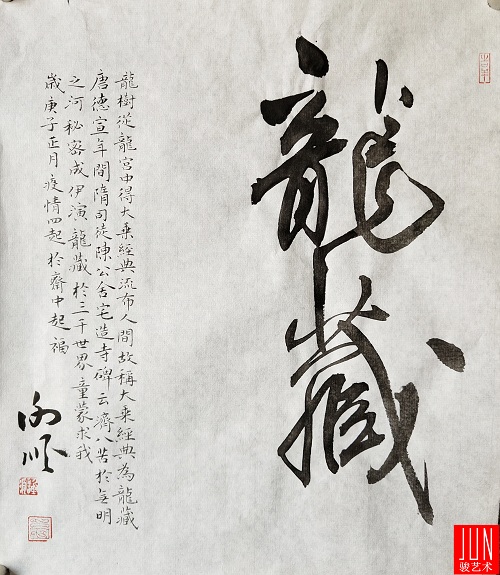 龍藏
龍樹從龍宮中得大乘經典流布人間故稱大乘經典為龍藏
唐德宣年間隋司徒陳公舍宅造寺碑云濟八苦於無明
之河秘密成伊演龍藏於三千世界童蒙求我
歲庚子正月疫情四起於齋中起福
JUN
骏艺术